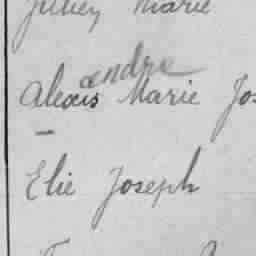 Marie
andre
Alexis Marie Jos
Elie Joseph